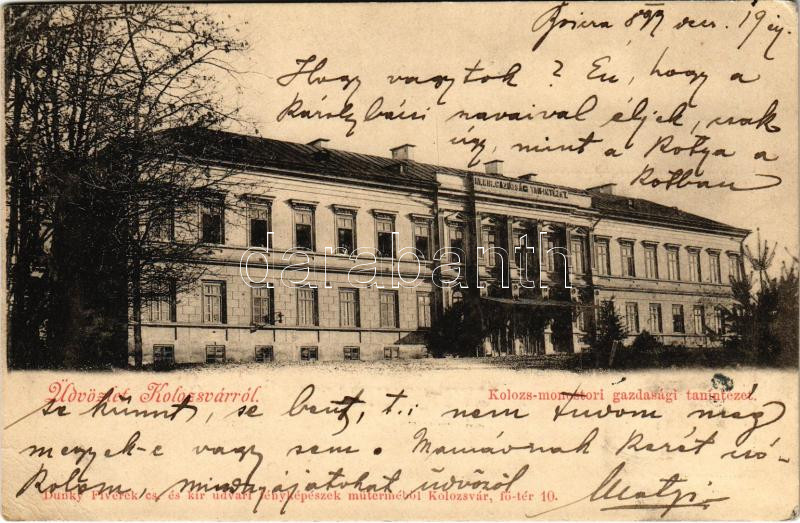 899 19
Hogy vagytok? Én, hogy a
Károly bácsi navaival éljek, csak
úgy, mint a Kotya a
Kotban
M. KIR. GAZDASÁGI TANINTÉZET.
darabanth
Üdvözlet Kolozsvárról.
Kolozs-monostori gazdasági tanintézet.
se künnt, se bent, t. i. nem tudom még
megyek-e vagy sem. Mamának Kezét csó-
Kolom, mindnyájatokat üdvözöl
Dunky Fivérek cs. és kir udvari fényképészek műterméből Kolozsvár, fő-tér 10.